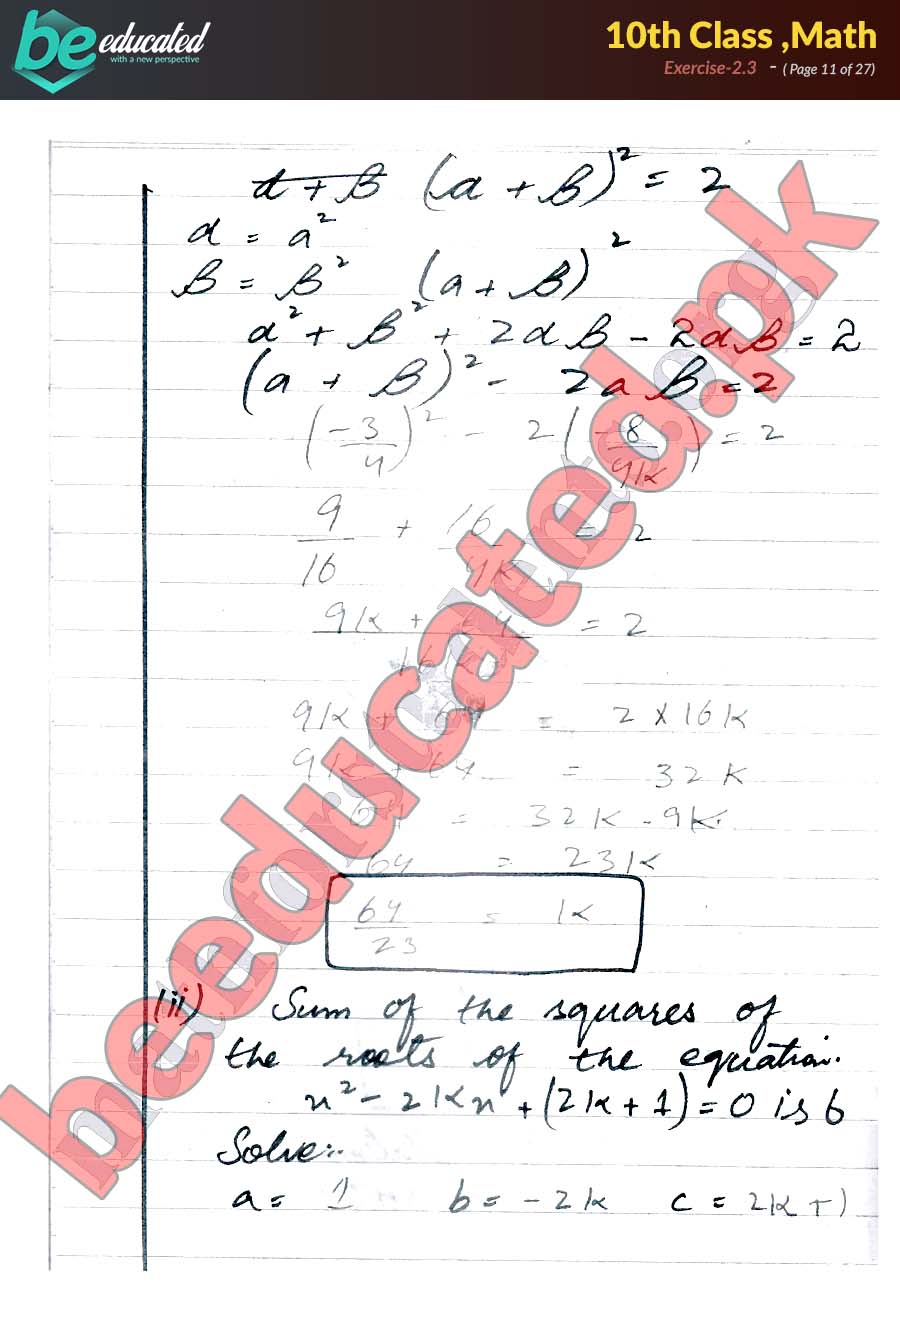 be educated
with a new perspective
10th Class ,Math
Exercise-2.3 - ( Page 11 of 27)
α + β (α + β)² = 2
α = α²
β = β² (α + β)²
α² + β² + 2αβ - 2αβ = 2
(α + β)² - 2αβ = 2
(-3/4)² - 2(-8/4k) = 2
9/16 + 16/4k = 2
9k + 64 / 16k = 2
9k + 64 = 2 × 16k
9k + 64 = 32k
64 = 32k - 9k
64 = 23k
64/23 = k
(ii) Sum of the squares of
the roots of the equation.
x² - 2kx + (2k + 1) = 0 is 6
Solve:-
a = 1 b = -2k c = 2k + 1
beeducated.pk